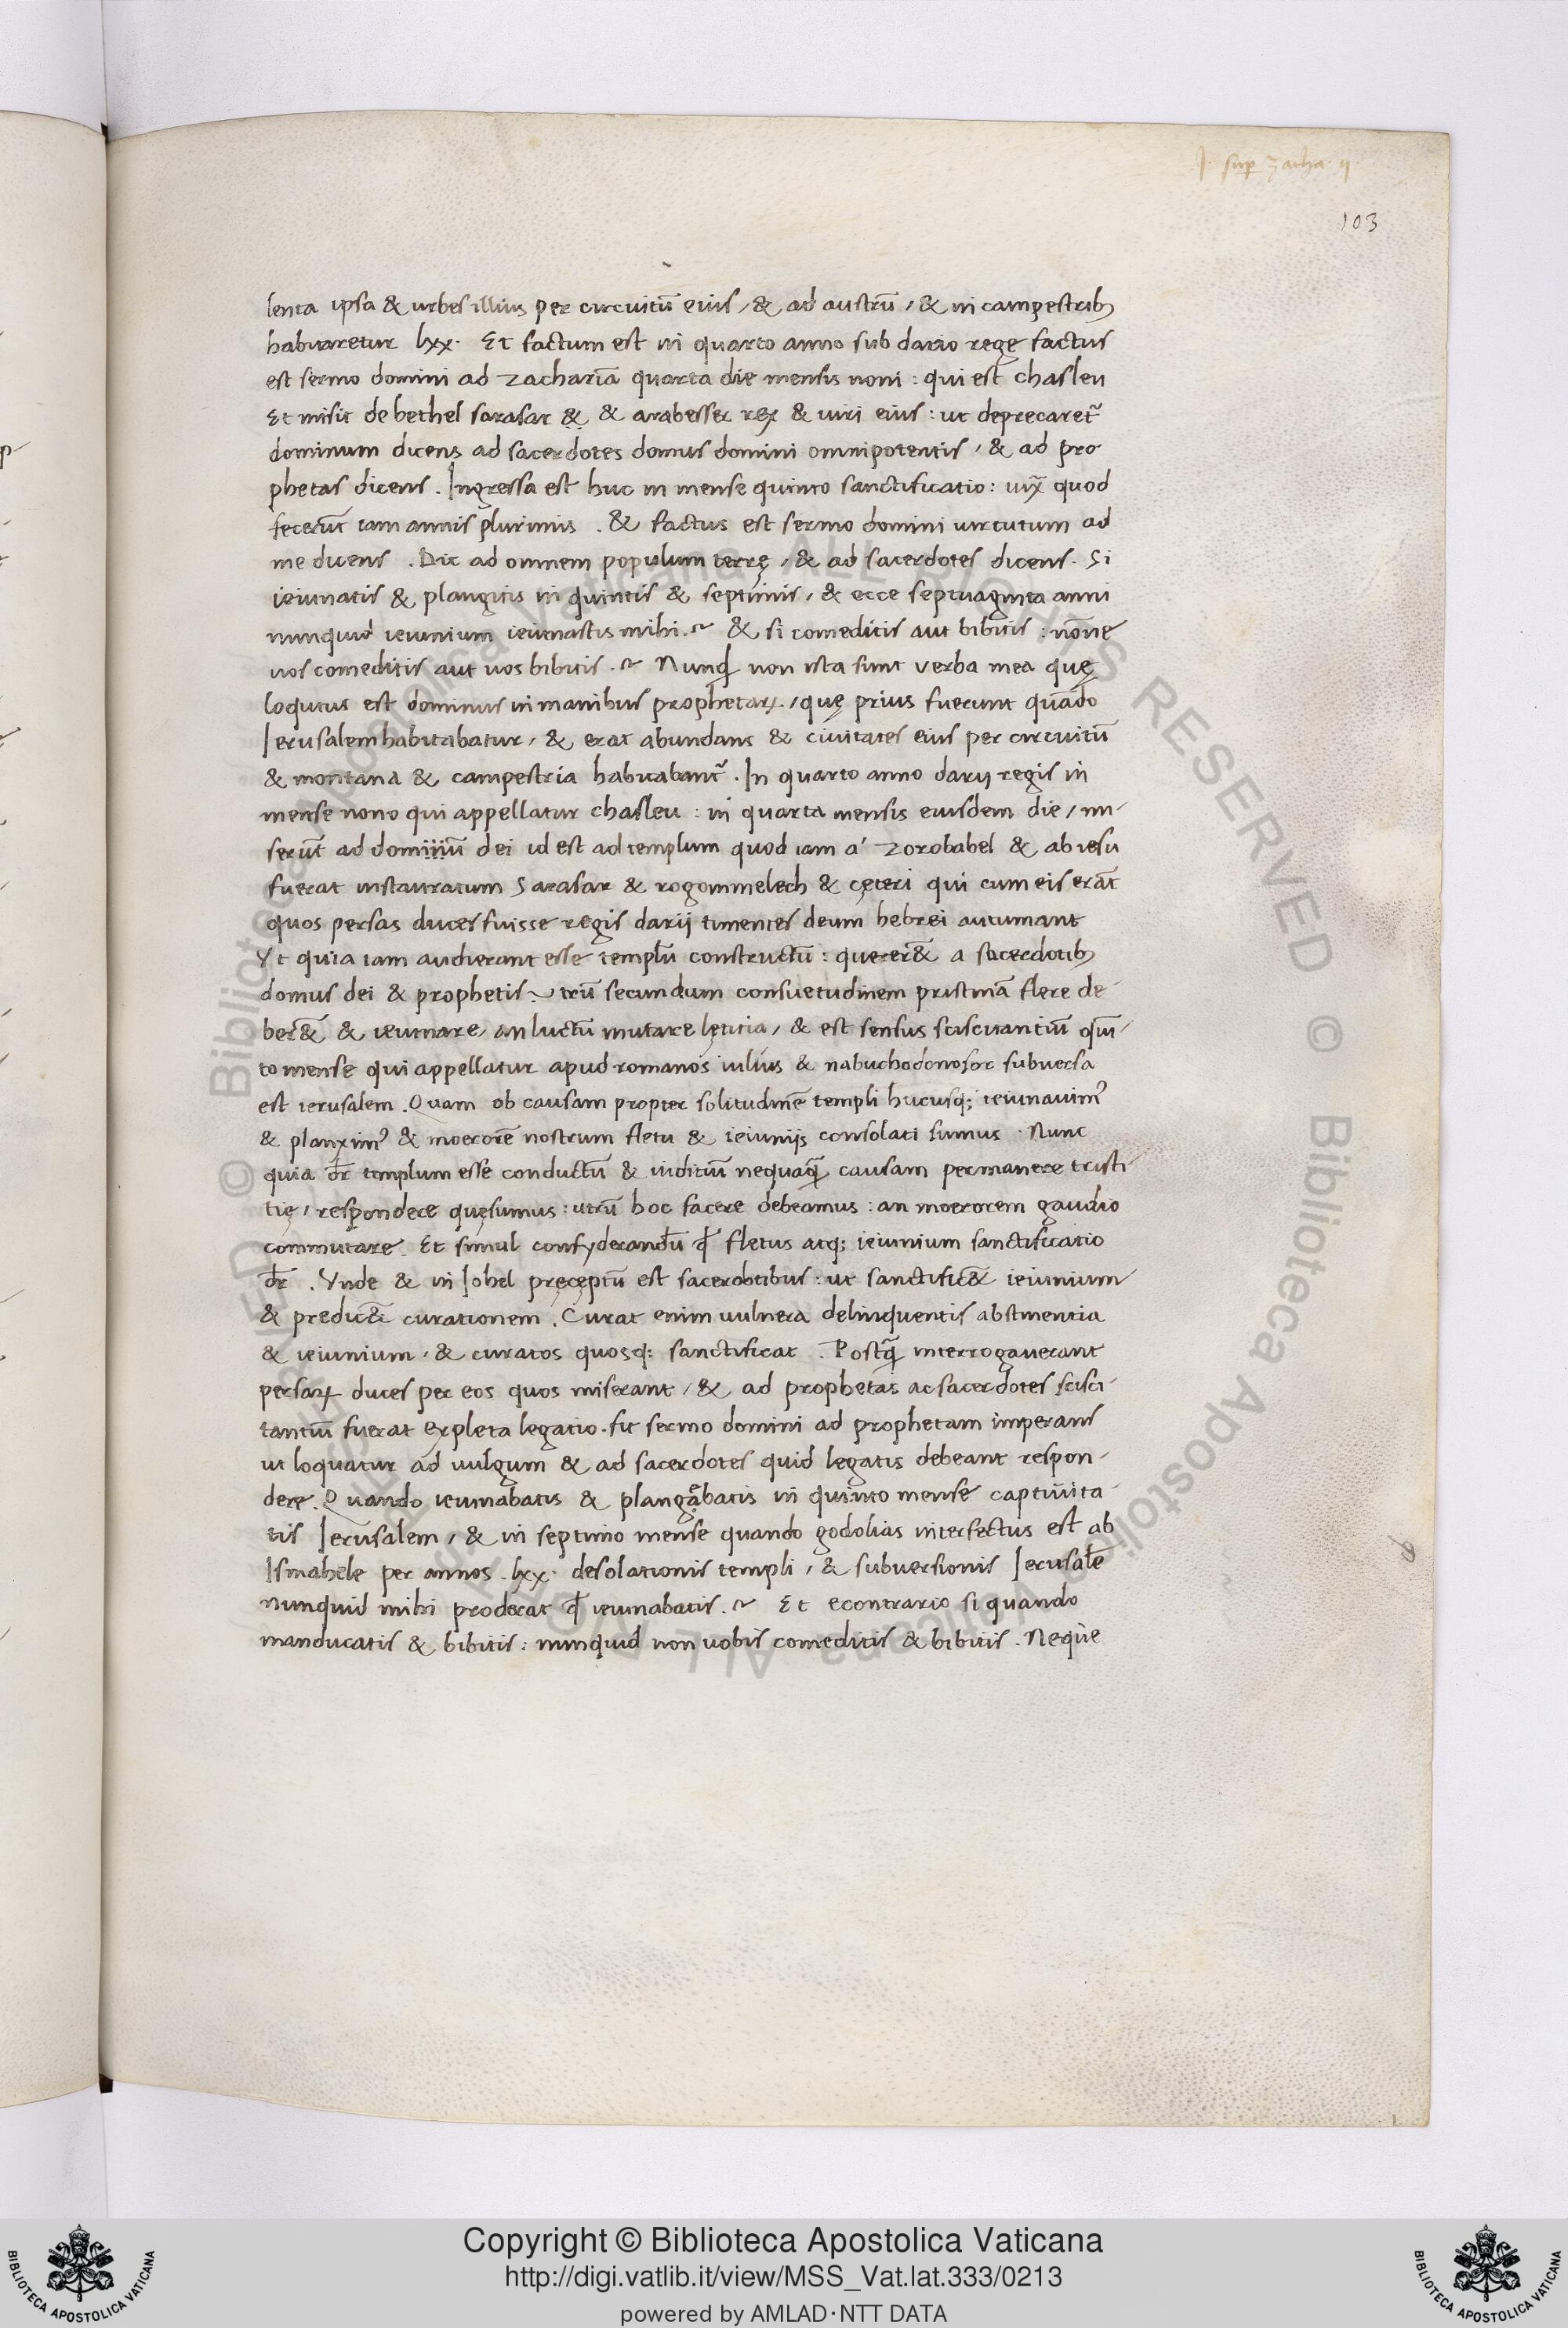 J. sup zacha. ij
103
lenta ipsa & urbes illius per circuitū eius, & ad austrū, & in campestrib;
habitaretur lxx. Et factum est in quarto anno sub dario rege factus
est sermo domini ad zachariā quarta die mensis noni: qui est chasleu
Et misit de bethel sarasar & & arabesser rex & uiri eius: ut deprecaret᷑
dominum dicens ad sacerdotes domus domini omnipotentis, & ad pro-
phetas dicens. Ingressa est huc in mense quinto sanctificatio: quod
fecerūt iam annis plurimis. & factus est sermo domini uirtutum ad
me dicens. Dic ad omnem populum terrę, & ad sacerdotes dicens. Si
ieiunatis & plangitis in quintis & septimis, & ecce septuaginta anni
nunquid ieiunium ieiunastis mihi.~ & si comeditis aut bibitis: nōne
uos comeditis aut uos bibitis.~ Nunqd non ista sunt verba mea quę
loqutus est dominus in manibus prophetaꝝ, quę prius fuerunt quādo
Jerusalem habitabatur, & erat abundans & ciuitates eius per circuitū
& montana & campestria habitabant᷑. In quarto anno darij regis in
mense nono qui appellatur chasleu: in quarta mensis eiusdem die, mi-
serūt ad domiiiū dei id est ad templum quod iam a' zorobabel & ab iesu
fuerat instauratum Sarasar & rogommelech & cęteri qui cum eis erāt
quos persas duces fuisse regis darij timentes deum hebrei autumant
Vt quia iam audierant esse templū constructū: querer& a sacerdotib;
domus dei & prophetis: trū secundum consuetudinem pristinā flere de-
ber& & ieiunare, an luctū mutare lętitia, & est sensus sciscitantiū qui̅-
to mense qui appellatur apud romanos iulius & nabuchodonosor subuersa
est ierusalem. Quam ob causam propter solitudinē templi hucusq; ieiunauim᷒
& planxim᷒ & moerorē nostrum fletu & ieiunijs consolati sumus. Nunc
quia dr̄ templum esse conductū & uiditiū nequaq̄ causam permanere tristi-
tię, respondere quęsumus: utrū hoc facere debeamus: an moerorem gaudio
commutare. Et simul confyderandū qd̄ fletus atq; ieiunium sanctificatio
dr̄. Vnde & in Johel pręceptū est sacerobtibus: ut sanctific& ieiunium
& predic& curationem. Curat enim uulnera delinquentis abstinentia
& ieiunium, & curatos quosq; sanctificat. Postq̄ interrogauerant
persaꝝ duces per eos quos miserant, & ad prophetas ac sacerdotes scisci-
tantiū fuerat expleta legatio. fit sermo domini ad prophetam imperans
ut loquatur ad uulgum & ad sacerdotes quid legatis debeant respon-
dere. Quando ieiunabatis & plangābatis in quinto mense captiuita-
tis Jerusalem, & in septimo mense quando godolias interfectus est ab
Ismahele per annos. lxx. desolationis templi, & subuersionis Jerusalē
nunquid mihi proderat qd̄ ieiunabatis.~ Et econtrario si quando
manducatis & bibitis: nunquid non uobis comeditis & bibitis. Neque
BIBLIOTECA APOSTOLICA VATICANA
Copyright © Biblioteca Apostolica Vaticana
http://digi.vatlib.it/view/MSS_Vat.lat.333/0213
powered by AMLAD·NTT DATA
BIBLIOTECA APOSTOLICA VATICANA